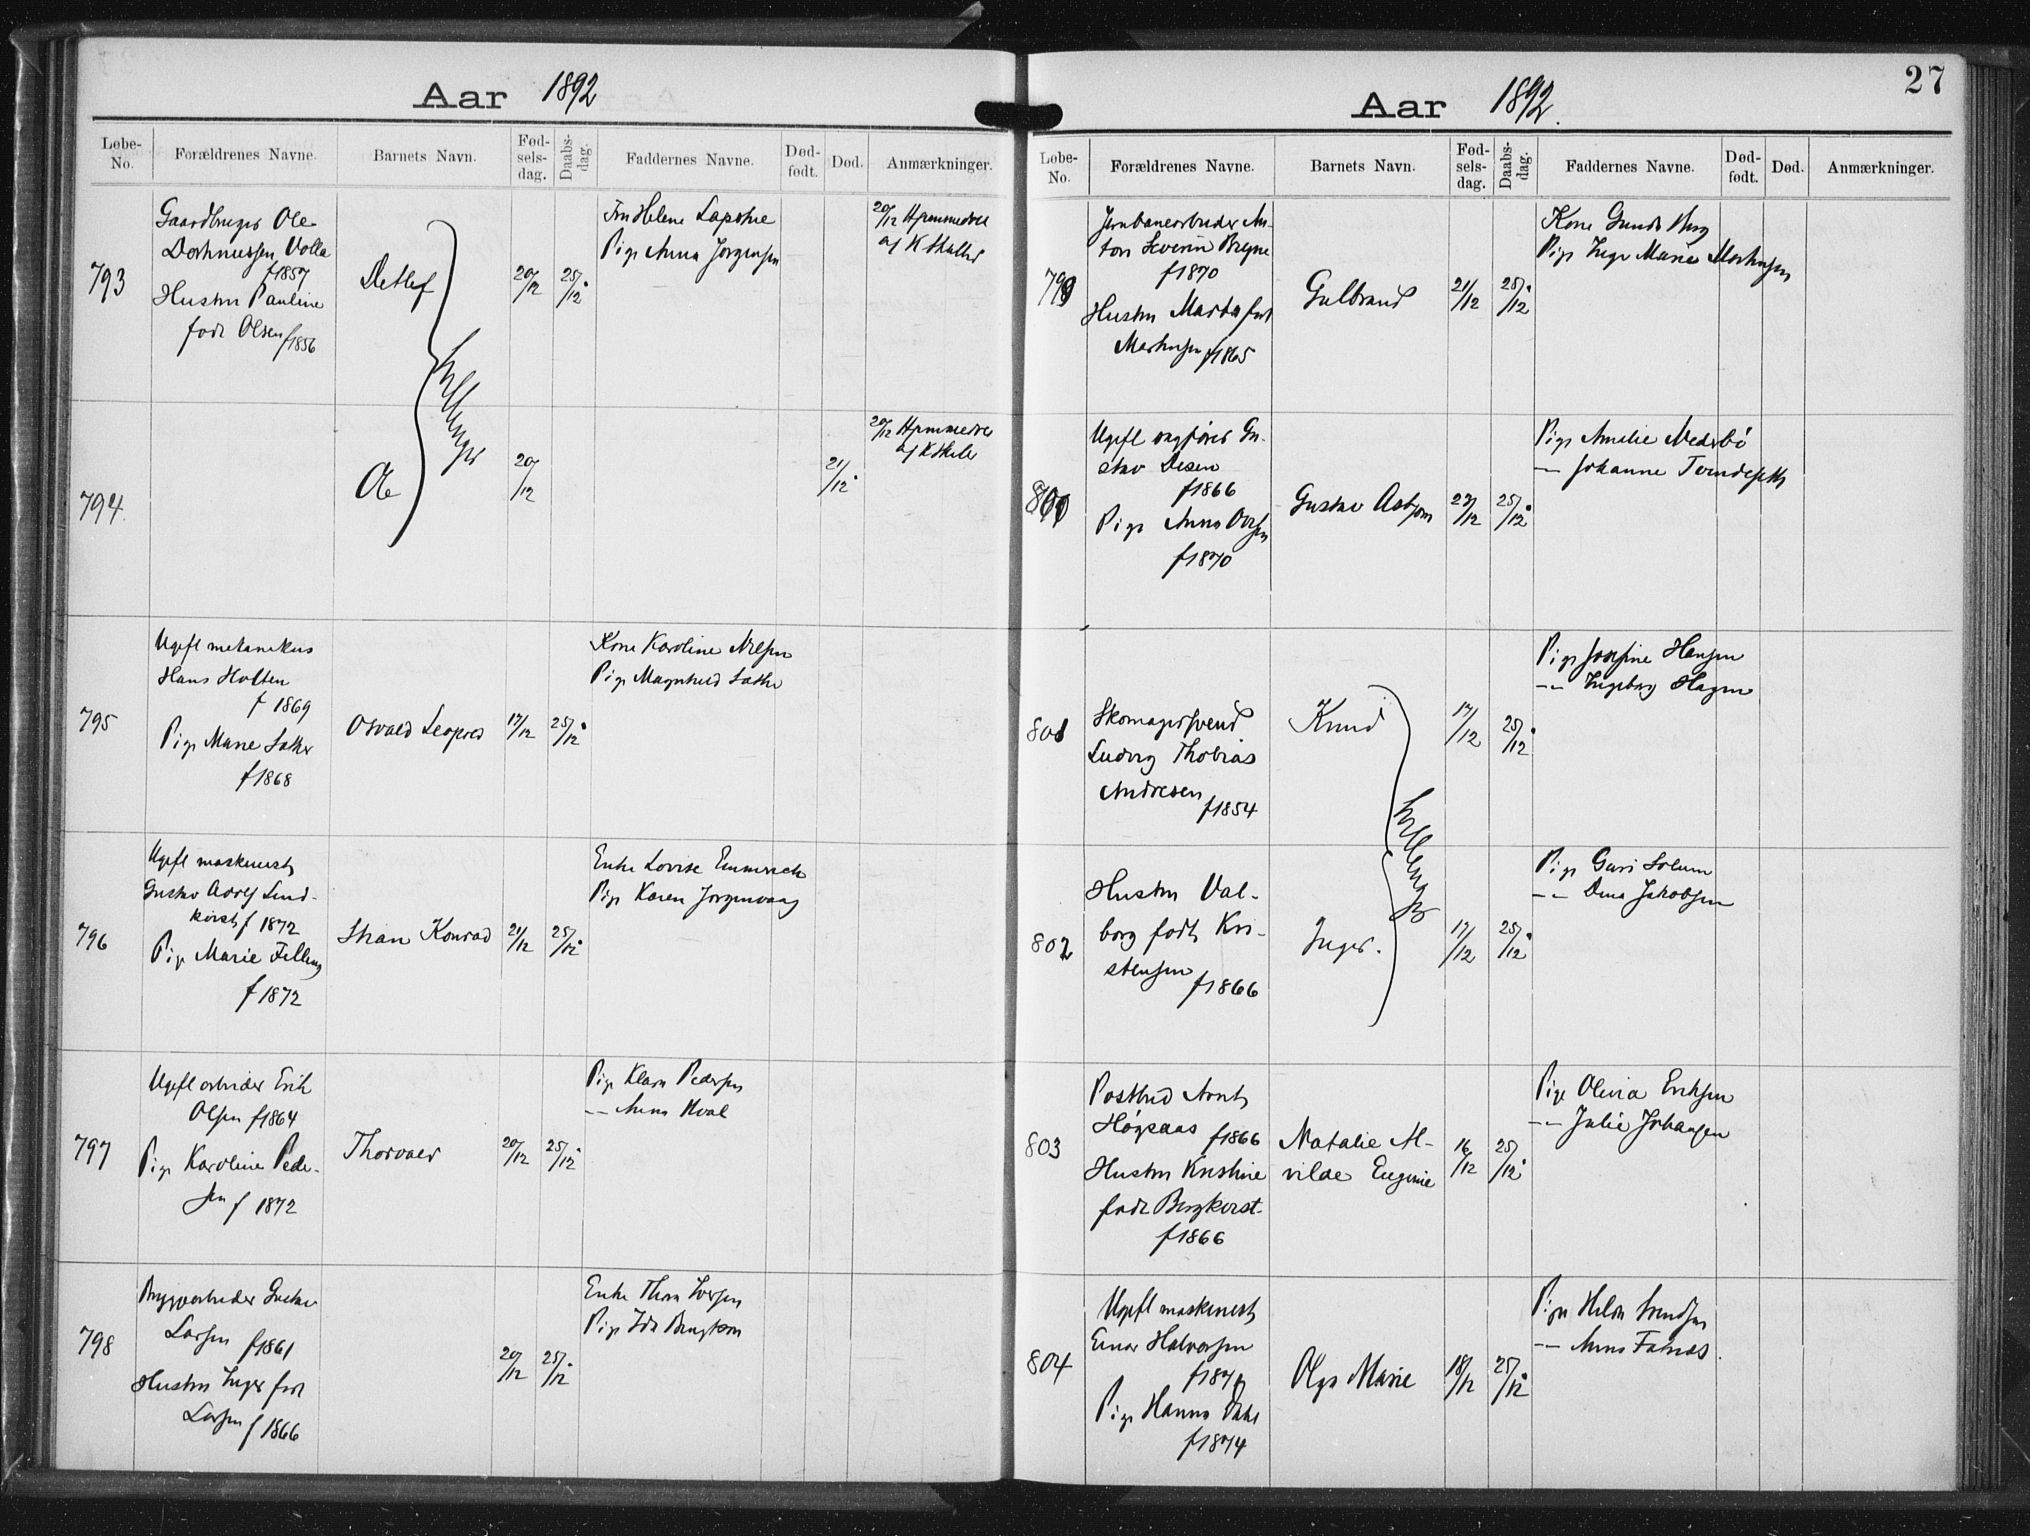 Aar 1892
Løbe-No. Forældrenes Navne. Barnets Navn. Fød-sels-dag. Daabs-dag. Faddernes Navne. Død-født. Død. Anmærkninger.
793
Gaardbruger Ole
Volla
f 1857
Hustru Pauline
født Olsen f 1856
Detlef
20/12
25/12
Fru Helene
Pige Anna Jørgensen
20/12 Hjemmedøbt
af K
Tvillinger
794.
Ole
20/12
21/12
20/12 Hjemmedøbt
af K
795
Ugift mekanikus
Hans Holten
f 1869
Pige Marie Sæther
f 1868
Osvald Leopold
17/12
25/12
Kone Karoline Nilsen
Pige Magnhild Sæther
796
Ugift maskinist
Gustav Adolf Lind-
kvist f 1872
Pige Marie Felling
f 1872
Konrad
21/12
25/12
Enke Lovise
Pige Karen
797
Ugift arbeider Erik
Olsen f 1864
Pige Karoline Peder-
sen f 1872
Thorvald
20/12
25/12
Pige Klara Pedersen
-- Anna Hval
798
Bryggearbeider Gustav
Larsen f 1861
Hustru Inger født
Larsen f 1866
20/12
25/12
Enke Thora Iversen
Pige Ida Bengtson
27
Aar 1892.
Løbe-No. Forældrenes Navne. Barnets Navn. Fød-sels-dag. Daabs-dag. Faddernes Navne. Død-født. Død. Anmærkninger.
799
Jernbanearbeider An-
ton Severin
f 1870
Hustru Martha født
Martinsen f 1865
Gulbrand
21/12
25/12
Kone Gunda Berg
Pige Inga Marie Martinsen
800
Ugift vognfører Gu-
stav Olsen
f 1866
Pige Anna
f 1870
Gustav Asbjørn
23/12
25/12
Pige Amalie Nederbø
-- Johanne
801
Skomagersvend
Ludvig Thobias
Andresen
f 1854
Knud
17/12
25/12
Pige Josefine Hansen
-- Ingeborg Hagen
Tvillinger
802
Hustru Val-
borg født Kri-
stensen
f 1866
Inger.
17/12
25/12
Pige Guri Solum
-- Dina Jakobsen
803
Postbud Arnt
Høgsaas f 1866
Hustru Kristine
født Bergkvist
f 1866
Natalie Al-
vilde Eugenie
16/12
25/12
Pige Olivia Eriksen
-- Julie Johansen
804
Ugift maskinist
Einar Halvorsen
Pige Hanna Dahl
f 1874
Olga Marie
18/12
25/12
Pige Hilda Svendsen
-- Anna